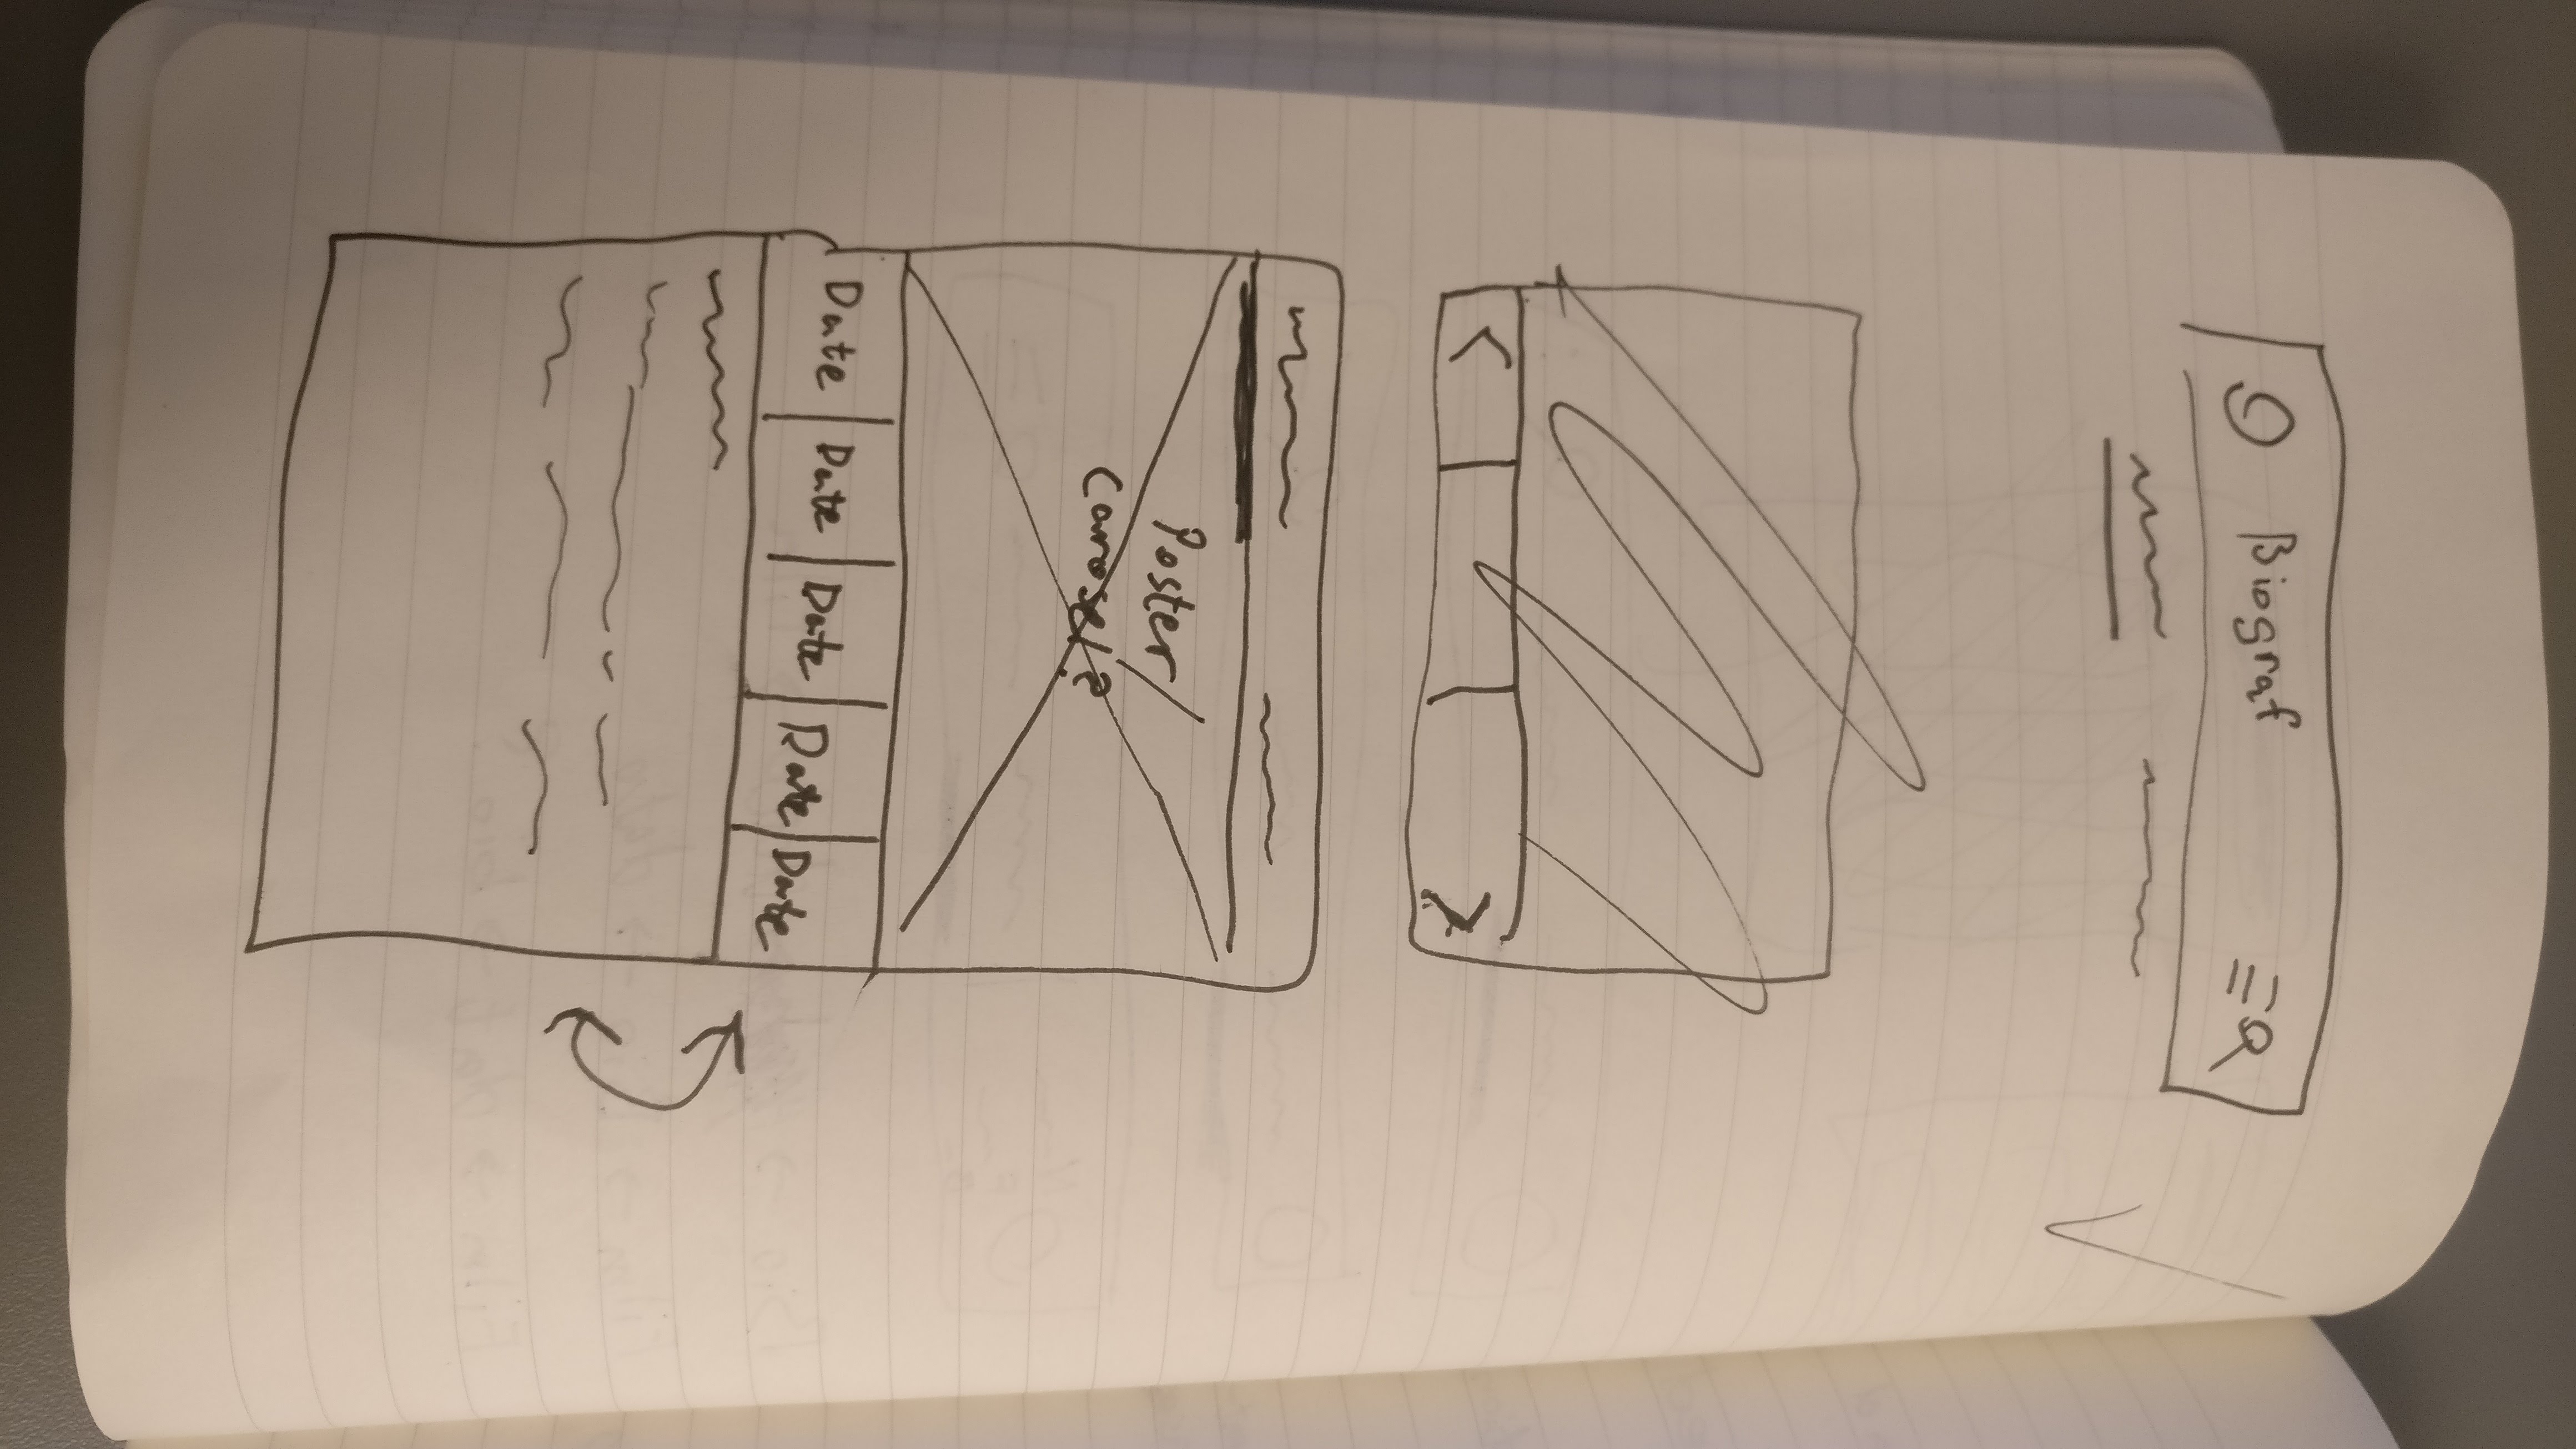 Biograf
Poster/
Carosel?
Date Date Date Date Date